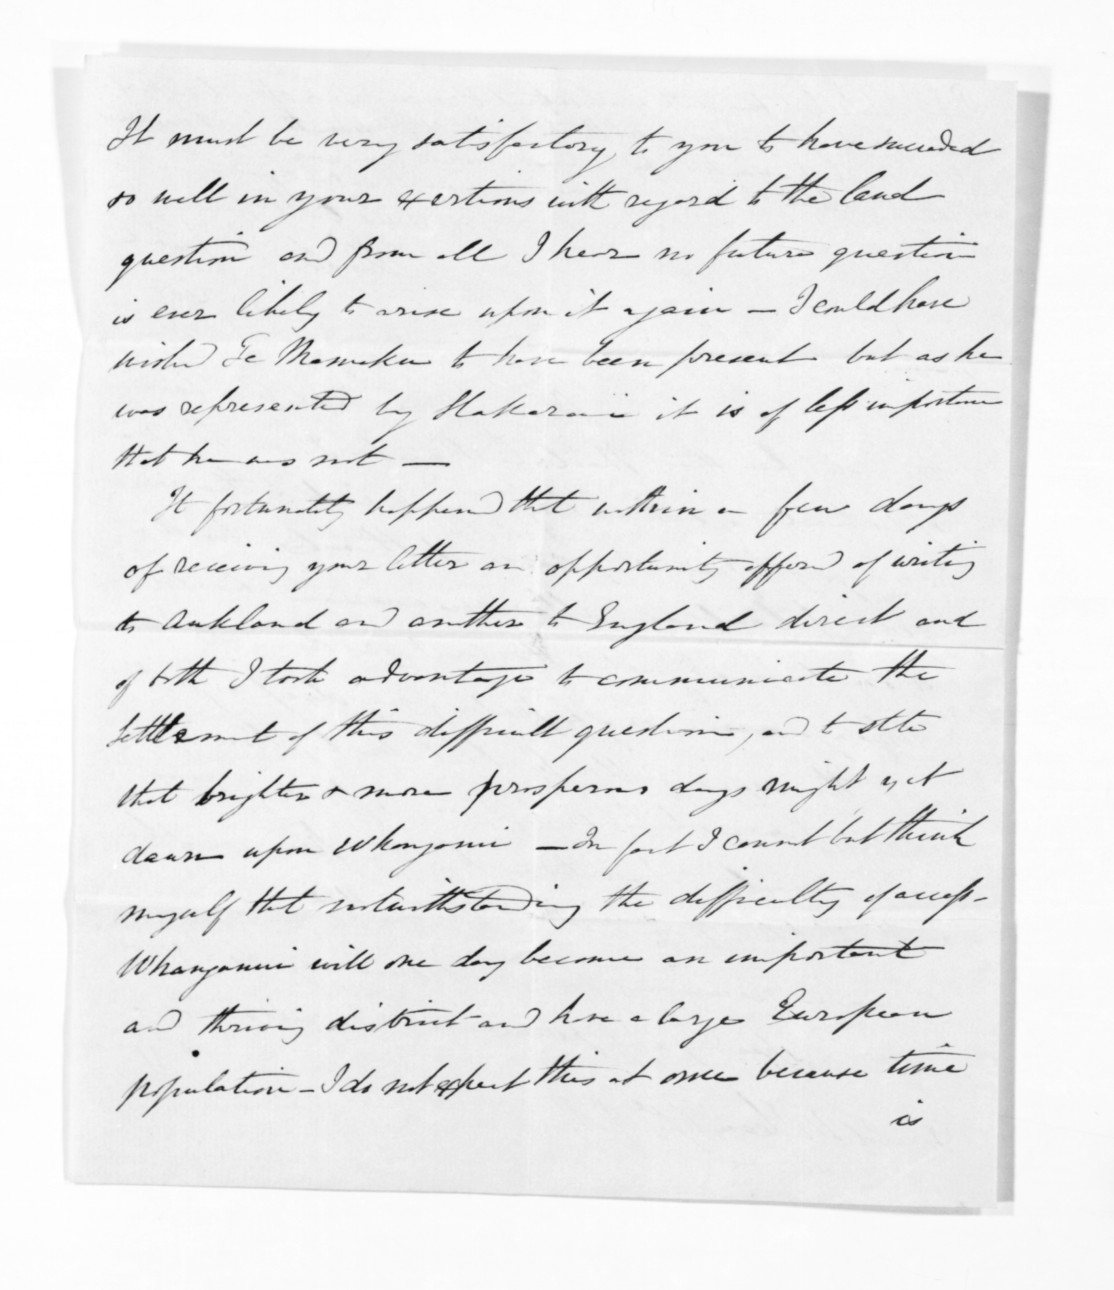 It must be very satisfactory to you to have succeeded
so well in your exertions with regard to the land
question and from all I hear no future question
is ever likely to arise upon it again – I could have
wished Te Mamaku to have been present but as he
was represented by it is of less importance
that he was not –
It fortunately happened that within a few days
of receiving your letter an opportunity offered of writing
to Aukland and another to England direct and
of both I took advantage to communicate the
settlement of this difficult question, and to state
that brighter & more prosperous days might yet
dawn upon Whanganui – In fact I cannot but think
myself that notwithstanding the difficulty of access –
Whanganui will one day become an important
and thriving district and have a large European
population – I do not expect this at once because time
is